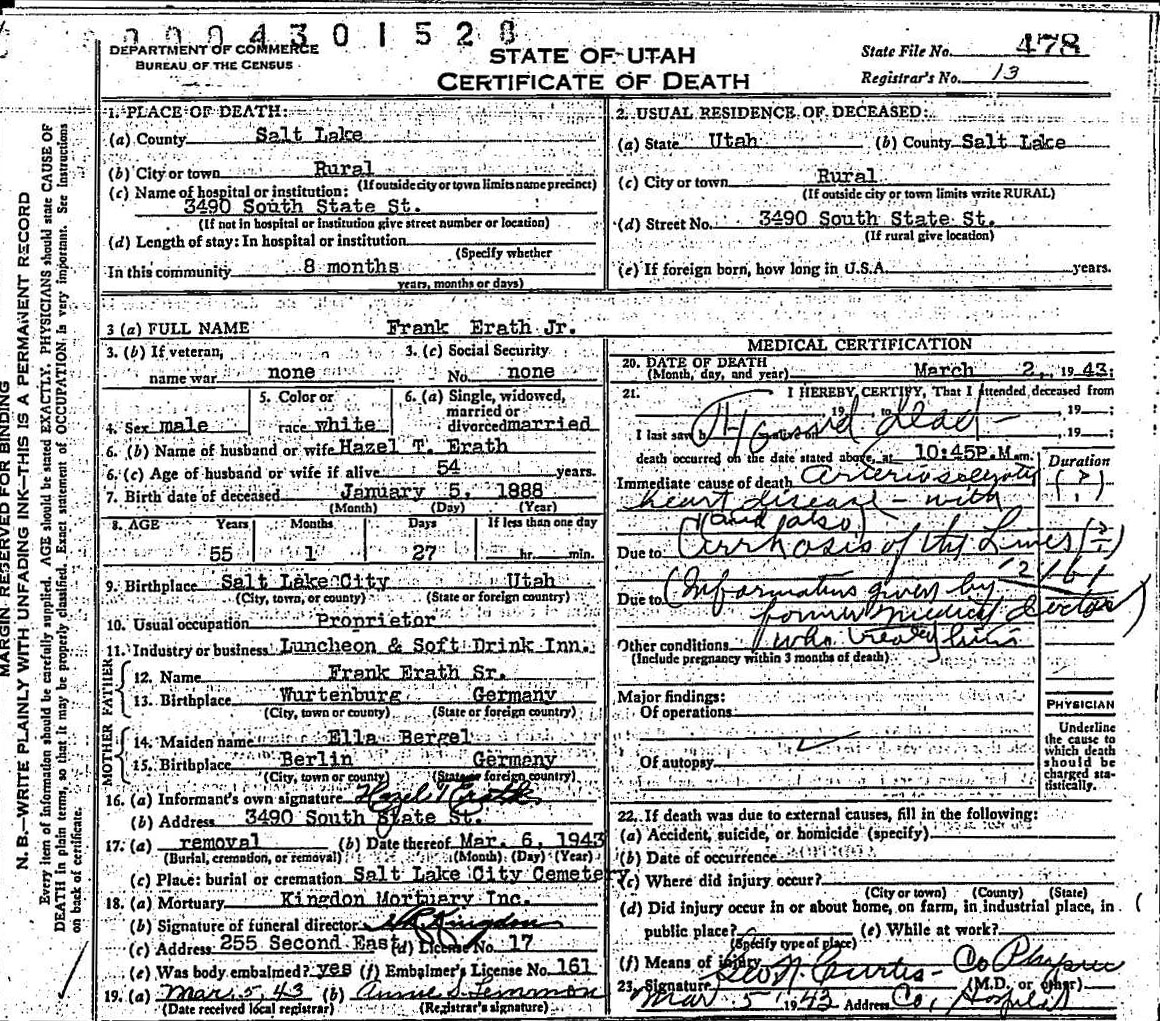 0004301520
DEPARTMENT OF COMMERCE
BUREAU OF THE CENSUS
STATE OF UTAH
CERTIFICATE OF DEATH
State File No. 478
Registrar's No. 13
MARGIN RESERVED FOR BINDING
N. B.—WRITE PLAINLY WITH UNFADING INK—THIS IS A PERMANENT RECORD
Every item of information should be carefully supplied. AGE should be stated EXACTLY. PHYSICIANS should state CAUSE OF
DEATH in plain terms, so that it may be properly classified. Exact statement of OCCUPATION is very important. See instructions
on back of certificate.
1. PLACE OF DEATH:
(a) County Salt Lake
(b) City or town Rural
(If outside city or town limits name precinct)
(c) Name of hospital or institution:
3490 South State St.
(If not in hospital or institution give street number or location)
(d) Length of stay: In hospital or institution
(Specify whether
In this community 8 months
years, months or days)
2. USUAL RESIDENCE OF DECEASED:
(a) State Utah (b) County Salt Lake
(c) City or town Rural
(If outside city or town limits write RURAL)
(d) Street No. 3490 South State St.
(If rural give location)
(e) If foreign born, how long in U.S.A. years.
3 (a) FULL NAME Frank Erath Jr.
3. (b) If veteran,
name war none
3. (c) Social Security
No. none
4. Sex male
5. Color or
race white
6. (a) Single, widowed,
married or
divorced married
6. (b) Name of husband or wife Hazel T. Erath
6. (c) Age of husband or wife if alive 54 years.
7. Birth date of deceased January 5, 1888
(Month) (Day) (Year)
8. AGE Years Months Days If less than one day
55 1 27 hr. min.
9. Birthplace Salt Lake City Utah
(City, town, or county) (State or foreign country)
10. Usual occupation Proprietor
11. Industry or business Luncheon & Soft Drink Inn.
FATHER
12. Name Frank Erath Sr.
13. Birthplace Wurtenburg Germany
(City, town or county) (State or foreign country)
MOTHER
14. Maiden name Ella Bergel
15. Birthplace Berlin Germany
(City, town or county) (State or foreign country)
16. (a) Informant's own signature Hazel T Erath
(b) Address 3490 South State St.
17. (a) removal (b) Date thereof Mar. 6, 1943
(Burial, cremation, or removal) (Month) (Day) (Year)
(c) Place: burial or cremation Salt Lake City Cemetery
18. (a) Mortuary Kingdon Mortuary Inc.
(b) Signature of funeral director Kingdon
(c) Address 255 Second East (d) License No. 17
(e) Was body embalmed? yes (f) Embalmer's License No. 161
19. (a) Mar. 5, 43 (b) Annie S. Lemmon
(Date received local registrar) (Registrar's signature)
MEDICAL CERTIFICATION
20. DATE OF DEATH
(Month, day, and year) March 2, 1943;
21. I HEREBY CERTIFY, That I attended deceased from
, 19 to , 19 ;
I last saw h alive on , 19 ;
Found dead
death occurred on the date stated above, at 10:45P.M. m.
Immediate cause of death Arteriosclerotic
heart disease - with
(and also)
Due to Cirrhosis of the Liver
Due to (Information given by
former medical doctor)
Other conditions who treated him
(Include pregnancy within 3 months of death)
Duration
(?)
Major findings:
Of operations
Of autopsy
PHYSICIAN
Underline
the cause to
which death
should be
charged sta-
tistically.
22. If death was due to external causes, fill in the following:
(a) Accident, suicide, or homicide (specify)
(b) Date of occurrence
(c) Where did injury occur?
(City or town) (County) (State)
(d) Did injury occur in or about home, on farm, in industrial place, in
public place? (e) While at work?
(Specify type of place)
(f) Means of injury
23. Signature Geo N. Curtis - Co Physician
(M.D. or other)
Mar 5 1943 Address Co. Hospital